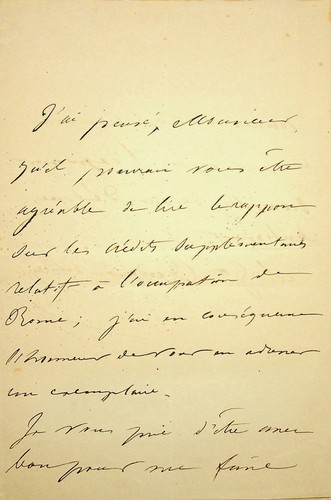 J'ai pensé, Monsieur,
qu'il pourrait vous être
agréable de lire le rapport
sur les crédits supplémentaires
relatif à l'occupation de
Rome; j'ai en conséquence
l'honneur de vous en adresser
un exemplaire.
Je vous prie d'être assez
bon pour me faire